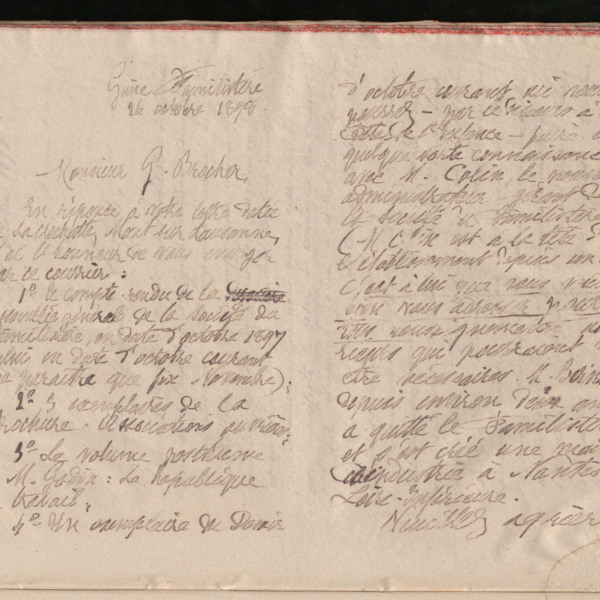 Guise Familistère
26 octobre 1898
Monsieur G. Brocher,
En réponse à votre lettre datée
La Rochette, Mont sur Lausanne,
j'ai l'honneur de vous envoyer
par ce courrier :
1º le compte-rendu de la
générale de la Société du
Familistère, en date d'octobre 1897
en date d'octobre courant
paraître que fin Novembre) ;
2º 3 exemplaires de la
Brochure : Associations ouvrières ;
3º Le volume posthume
M. Godin : La République
travail ;
4º Un exemplaire du Devoir
d'octobre courant où vous
pourrez - par le discours à
Fête de l'Enfance - faire en
quelque sorte connaissance
avec M. Colin, le nouvel
administrateur-gérant de
la Société du Familistère
(M. Colin est à la tête de
l'établissement depuis un
C'est à lui que vous
vous adresser pour
tous renseignements
qui pourraient
être nécessaires. M. Bern
depuis environ deux ans
a quitté le Familistère
et s'est créé une
industrie à Nantes
Loire-Inférieure.
Veuillez agréer